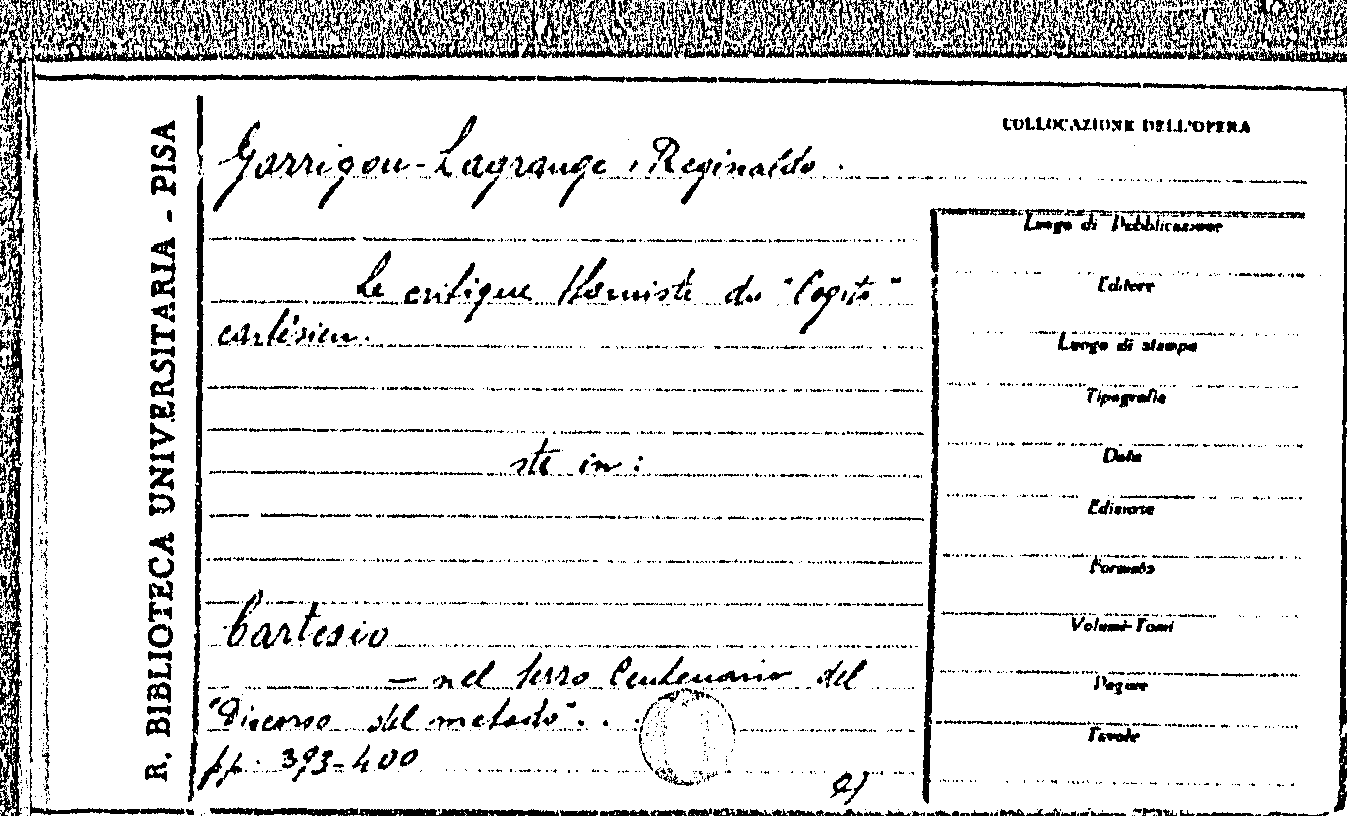 R. BIBLIOTECA UNIVERSITARIA - PISA
COLLOCAZIONE DELL'OPERA
Garrigou-Lagrange, Reginaldo.
Le critique thomiste du "Cogito"
cartésien.
sta in:
Cartesio
- nel terzo Centenario del
"Discorso del metodo"...
pp. 393-400
Luogo di Pubblicazione
Editore
Luogo di stampa
Tipografia
Data
Edizione
Formato
Volumi-Tomi
Pagine
Tavole